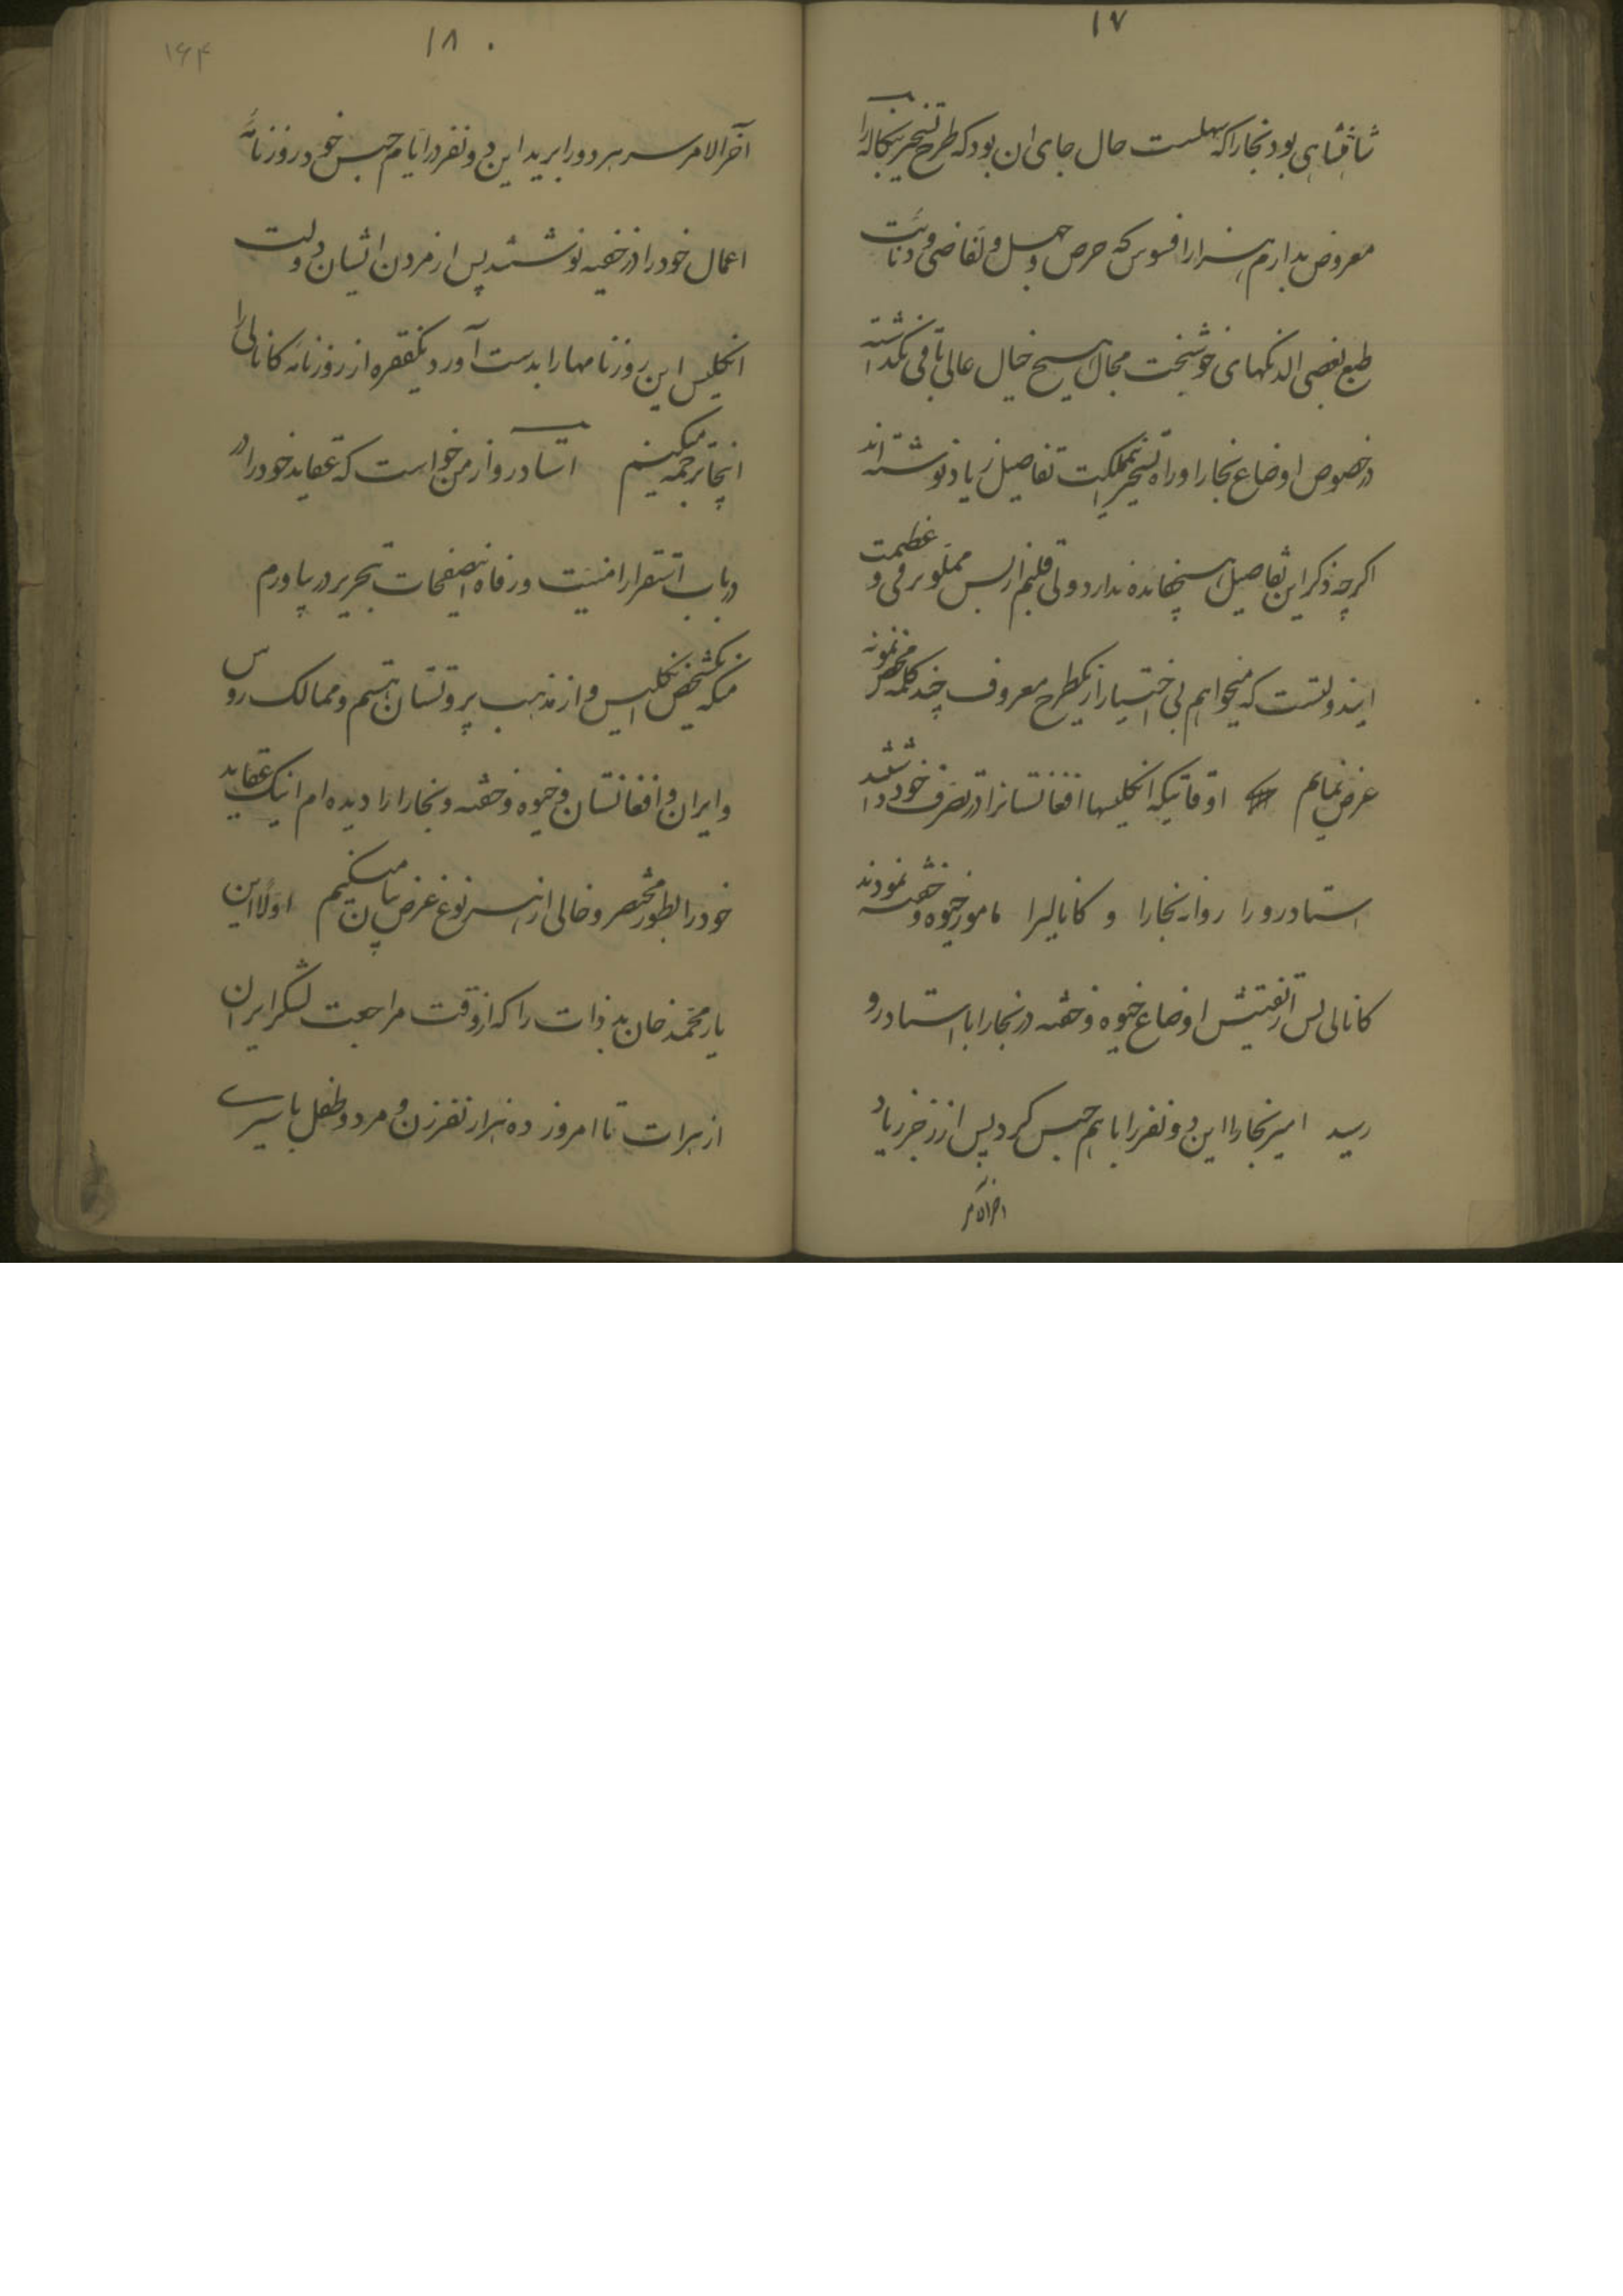 ۱۷
شاهنشاهی بود بخارا که سهلست حال جای ان بود که طرح تسخیر بنگاله را
معروض بدارم هزار افسوس که حرص و جهل و تفاضی و دنائت
طبع بعضی الدنکهای خوشبخت مجال هیچ خیال عالی باقی نگذاشته
در خصوص اوضاع بخارا و راه تسخیر مملکت تفاصیل زیاد نوشته اند
اکرچه ذکر این تفاصیل هیچ فایده ندارد ولی قلبم از بس مملو ترقی و عظمت
ایندولتست که میخواهم بی اختیار از یکطرح معروف چند کلمه مختصر نمونه
عرض نمایم اوقاتیکه انکلیسها افغانستانرا در تصرف خود داشتند
استادرو را روانه بخارا و کانالیرا مامور خیوه و خقند نمودند
کانالی پس از تفتیش اوضاع خیوه و خقند در بخارا با استادرو
رسید امیر بخارا این دو نفر را با هم حبس کرد پس از زجر زیاد
اخرالامر
۱۸
۱۶۴
آخرالامر سر هر دو را برید این دو نفر در ایام حبس خود روزنامه
اعمال خود را در خفیه نوشتند پس از مردن ایشان دولت
انکلیس این روزنامها را بدست آورد یکفقره از روزنامه کانالی را
اینجا ترجمه میکنیم استادرو از من خواست که عقاید خود را در
در باب استقرار امنیت و رفاه اینصفحات بتحریر در بیاورم
منکه یکشخص انکلیس و از مذهب پروتستان هستم و ممالک روس
و ایران و افغانستان و خیوه و خقند و بخارا را دیده ام اینک عقاید
خود را بطور مختصر و خالی از هر نوع غرض بیان میکنیم اولا این
یار محمد خان بد ذات را که از وقت مراجعت لشکر ایران
از هرات تا امروز ده هزار نفر زن و مرد و طفل باسیری